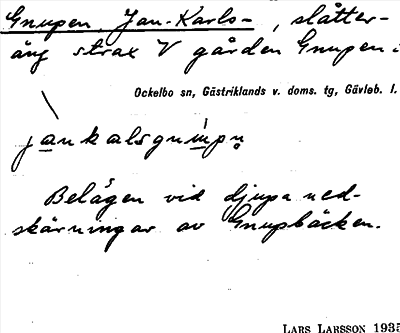 Gnupen, Jan-Karls-, slåtter-
äng strax V gården Gnupen.
Ockelbo sn, Gästriklands v. doms. tg, Gävleb. l.
jankalsgnupn
Belägen vid djupa ned-
skärningar av Gnupbäcken.
LARS LARSSON 1935